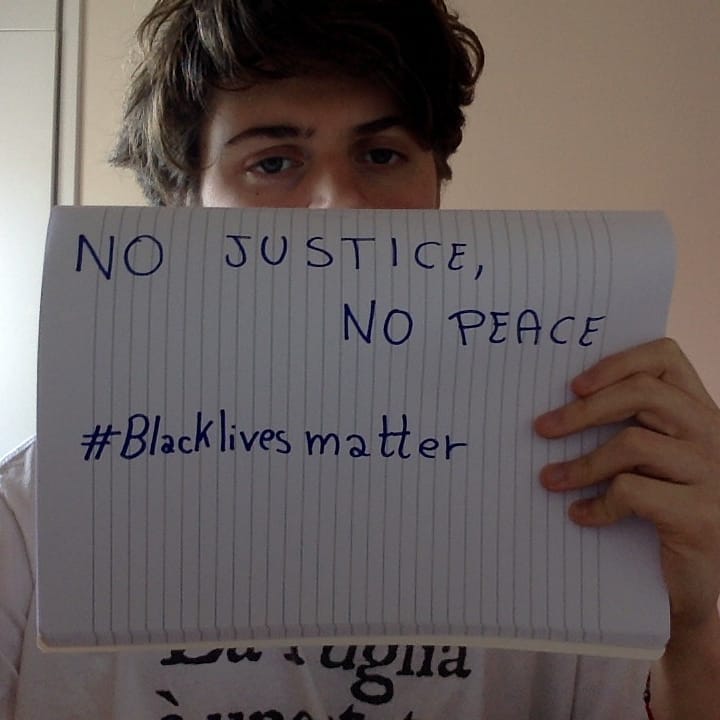 NO JUSTICE,
NO PEACE
#Blacklives matter
La Puglia
è una